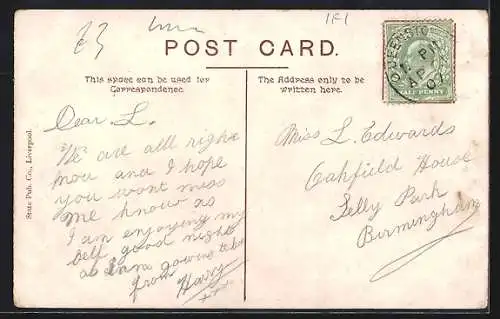 23
1F1
POST CARD.
This space can be used for
Correspondence.
The Address only to be
written here.
HALF PENNY
State Pub. Co., Liverpool.
Dear L.
We are all right
now and I hope
you wont miss
me know as
I am enjoying my
self good night
as
from Harry
Miss L. Edwards
Oakfield House
Selly Park
Birmingham